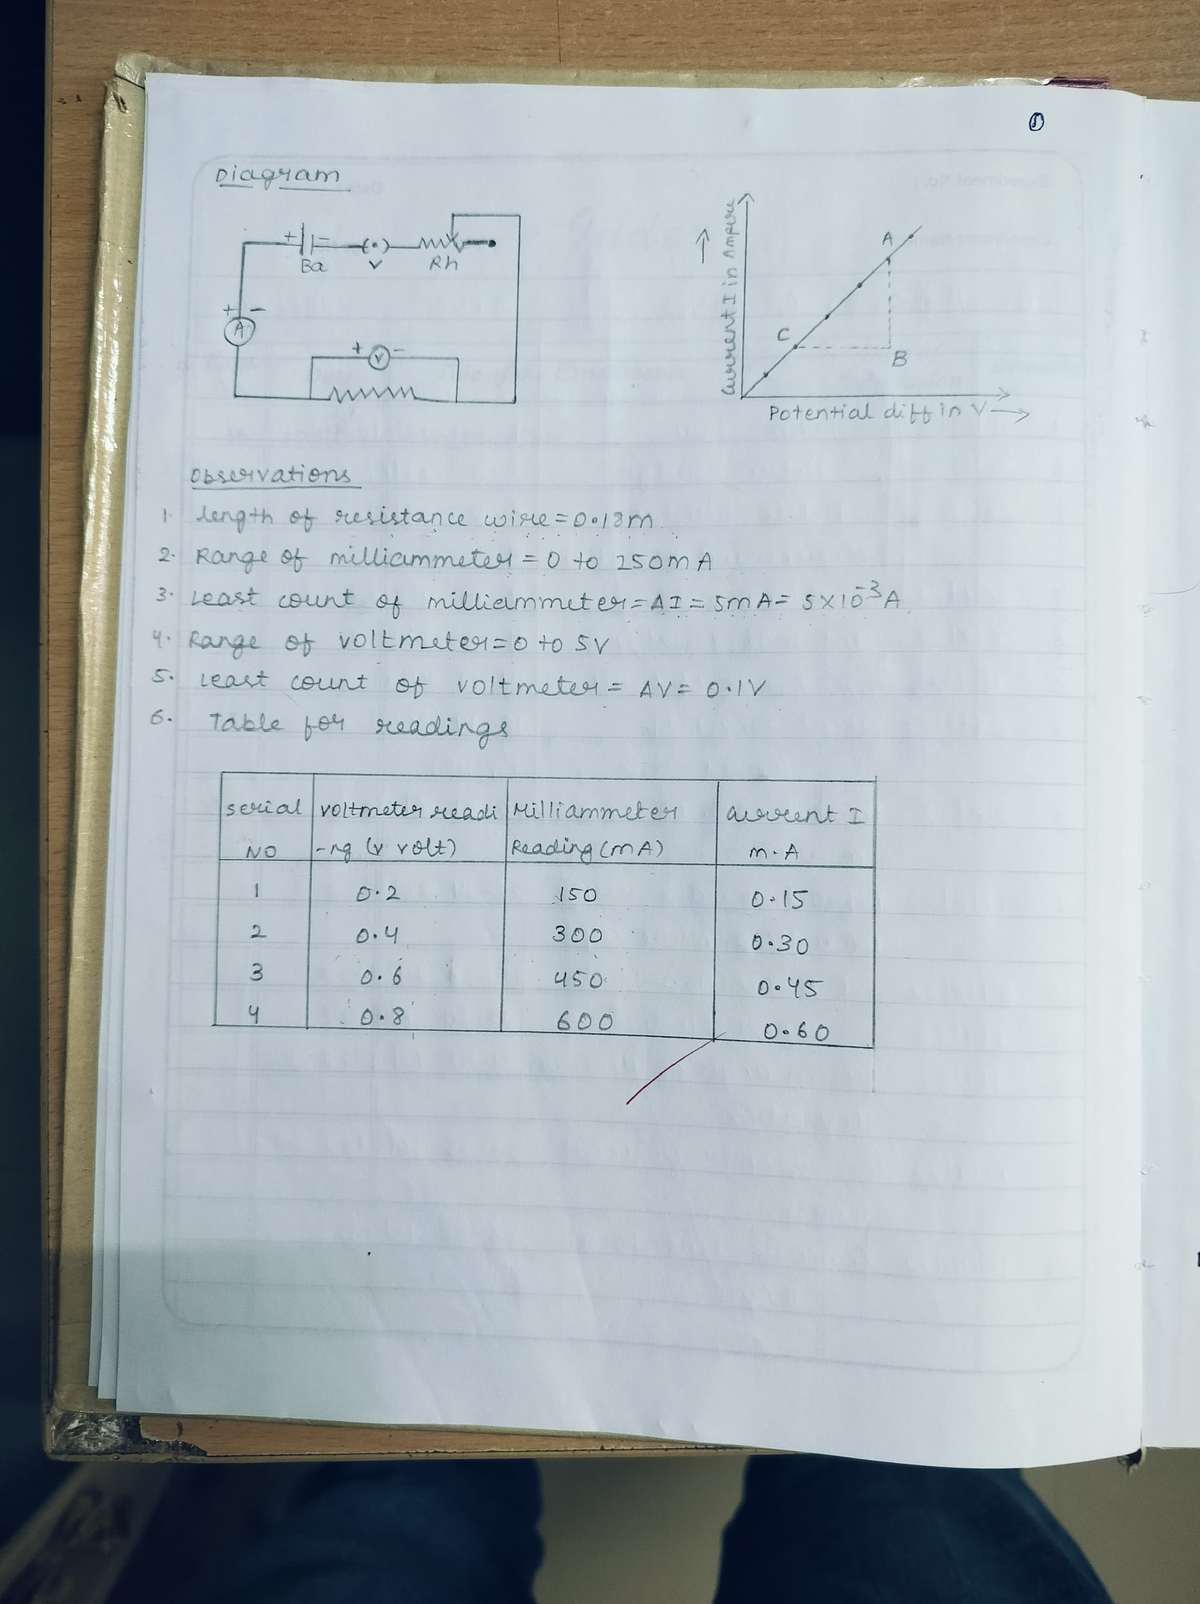 1
Diagram
+ -
Ba
Rh
+ -
A
+ V -
Current I in Ampere
A
C
B
Potential diff in V
Observations
1. length of resistance wire = 0.13m
2. Range of milliammeter = 0 to 250mA
3. Least count of milliammeter = ΔI = 5mA = 5×10⁻³A
4. Range of voltmeter = 0 to 5V
5. Least count of voltmeter = ΔV = 0.1V
6. Table for readings
Serial NO | voltmeter readi -ng (v volt) | Milliammeter Reading (mA) | Current I m.A
1 | 0.2 | 150 | 0.15
2 | 0.4 | 300 | 0.30
3 | 0.6 | 450 | 0.45
4 | 0.8 | 600 | 0.60